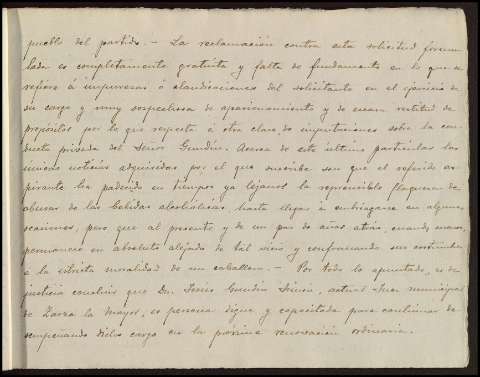 pueblo del partido. — La reclamación contra esta solicitud formu-
lada es completamente gratuita y falta de fundamento en lo que se
refiere á impurezas ó claudicaciones del solicitante en el ejercicio de
su cargo y muy sospechosa de apasionamiento y de escasa rectitud de
propósitos por lo que respecta á otra clase de imputaciones sobre la con-
ducta privada del Señor Gundín. Acerca de este último particular las
únicas noticias adquiridas por el que suscribe son que el referido as-
pirante ha padecido en tiempos ya lejanos la reprensible flaqueza de
abusar de las bebidas alcohólicas, hasta llegar á embriagarse en algunas
ocasiones, pero que al presente y de un par de años atrás, cuando menos,
permanece en absoluto alejado de tal vicio y conformando sus costumbres
á la estricta moralidad de un caballero. — Por todo lo apuntado, es de
justicia concluir que Don Jesús Gundín actual Juez municipal
de Zarza la Mayor, es persona digna y capacitada para continuar de-
sempeñando dicho cargo en la próxima renovación ordinaria.